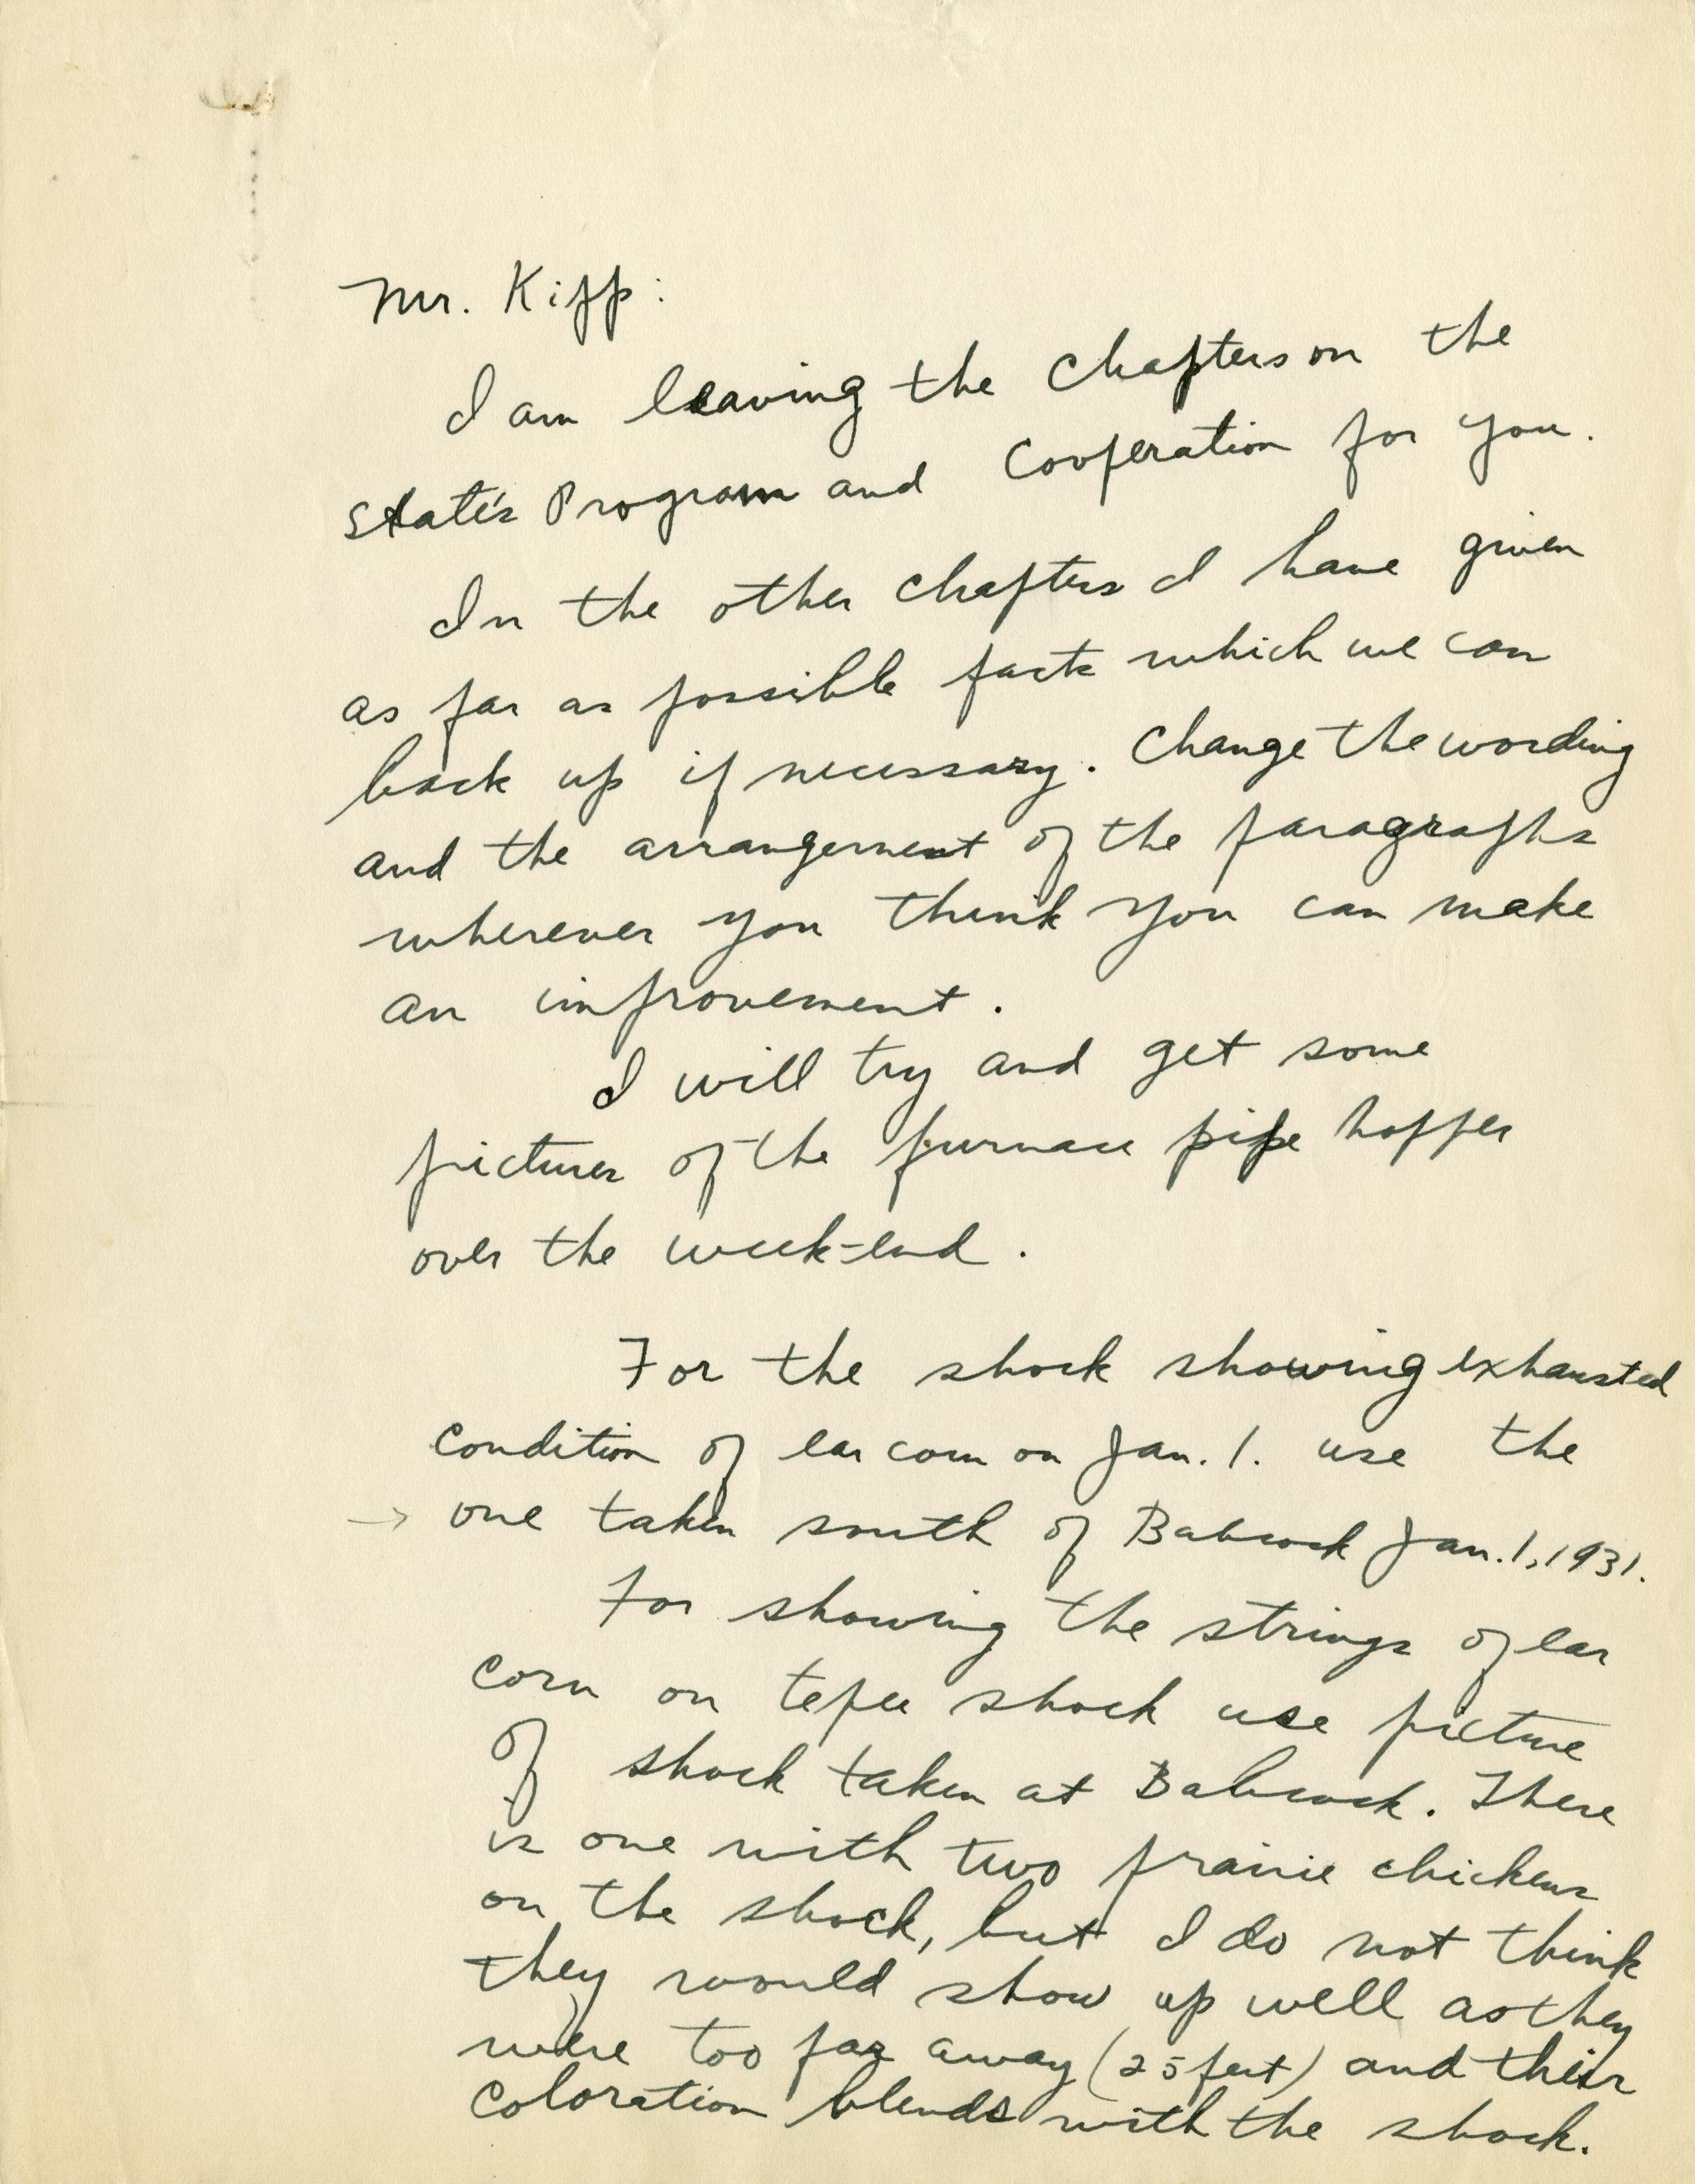 Mr. Kipp:
I am leaving the Chapters on the
State's Program and Cooperation for you.
In the other chapters I have given
as far as possible facts which we can
back up if necessary. Change the wording
and the arrangement of the paragraphs
wherever you think you can make
an improvement.
I will try and get some
pictures of the furnace pipe hopper
over the week-end.
For the shock showing exhausted
condition of ear corn on Jan. 1. use the
→ one taken south of Babcock Jan. 1, 1931.
For showing the strings of ear
corn on tepee shock use picture
of shock taken at Babcock. There
is one with two prairie chickens
on the shock, but I do not think
they would show up well as they
were too far away (25 feet) and their
coloration blends with the shock.